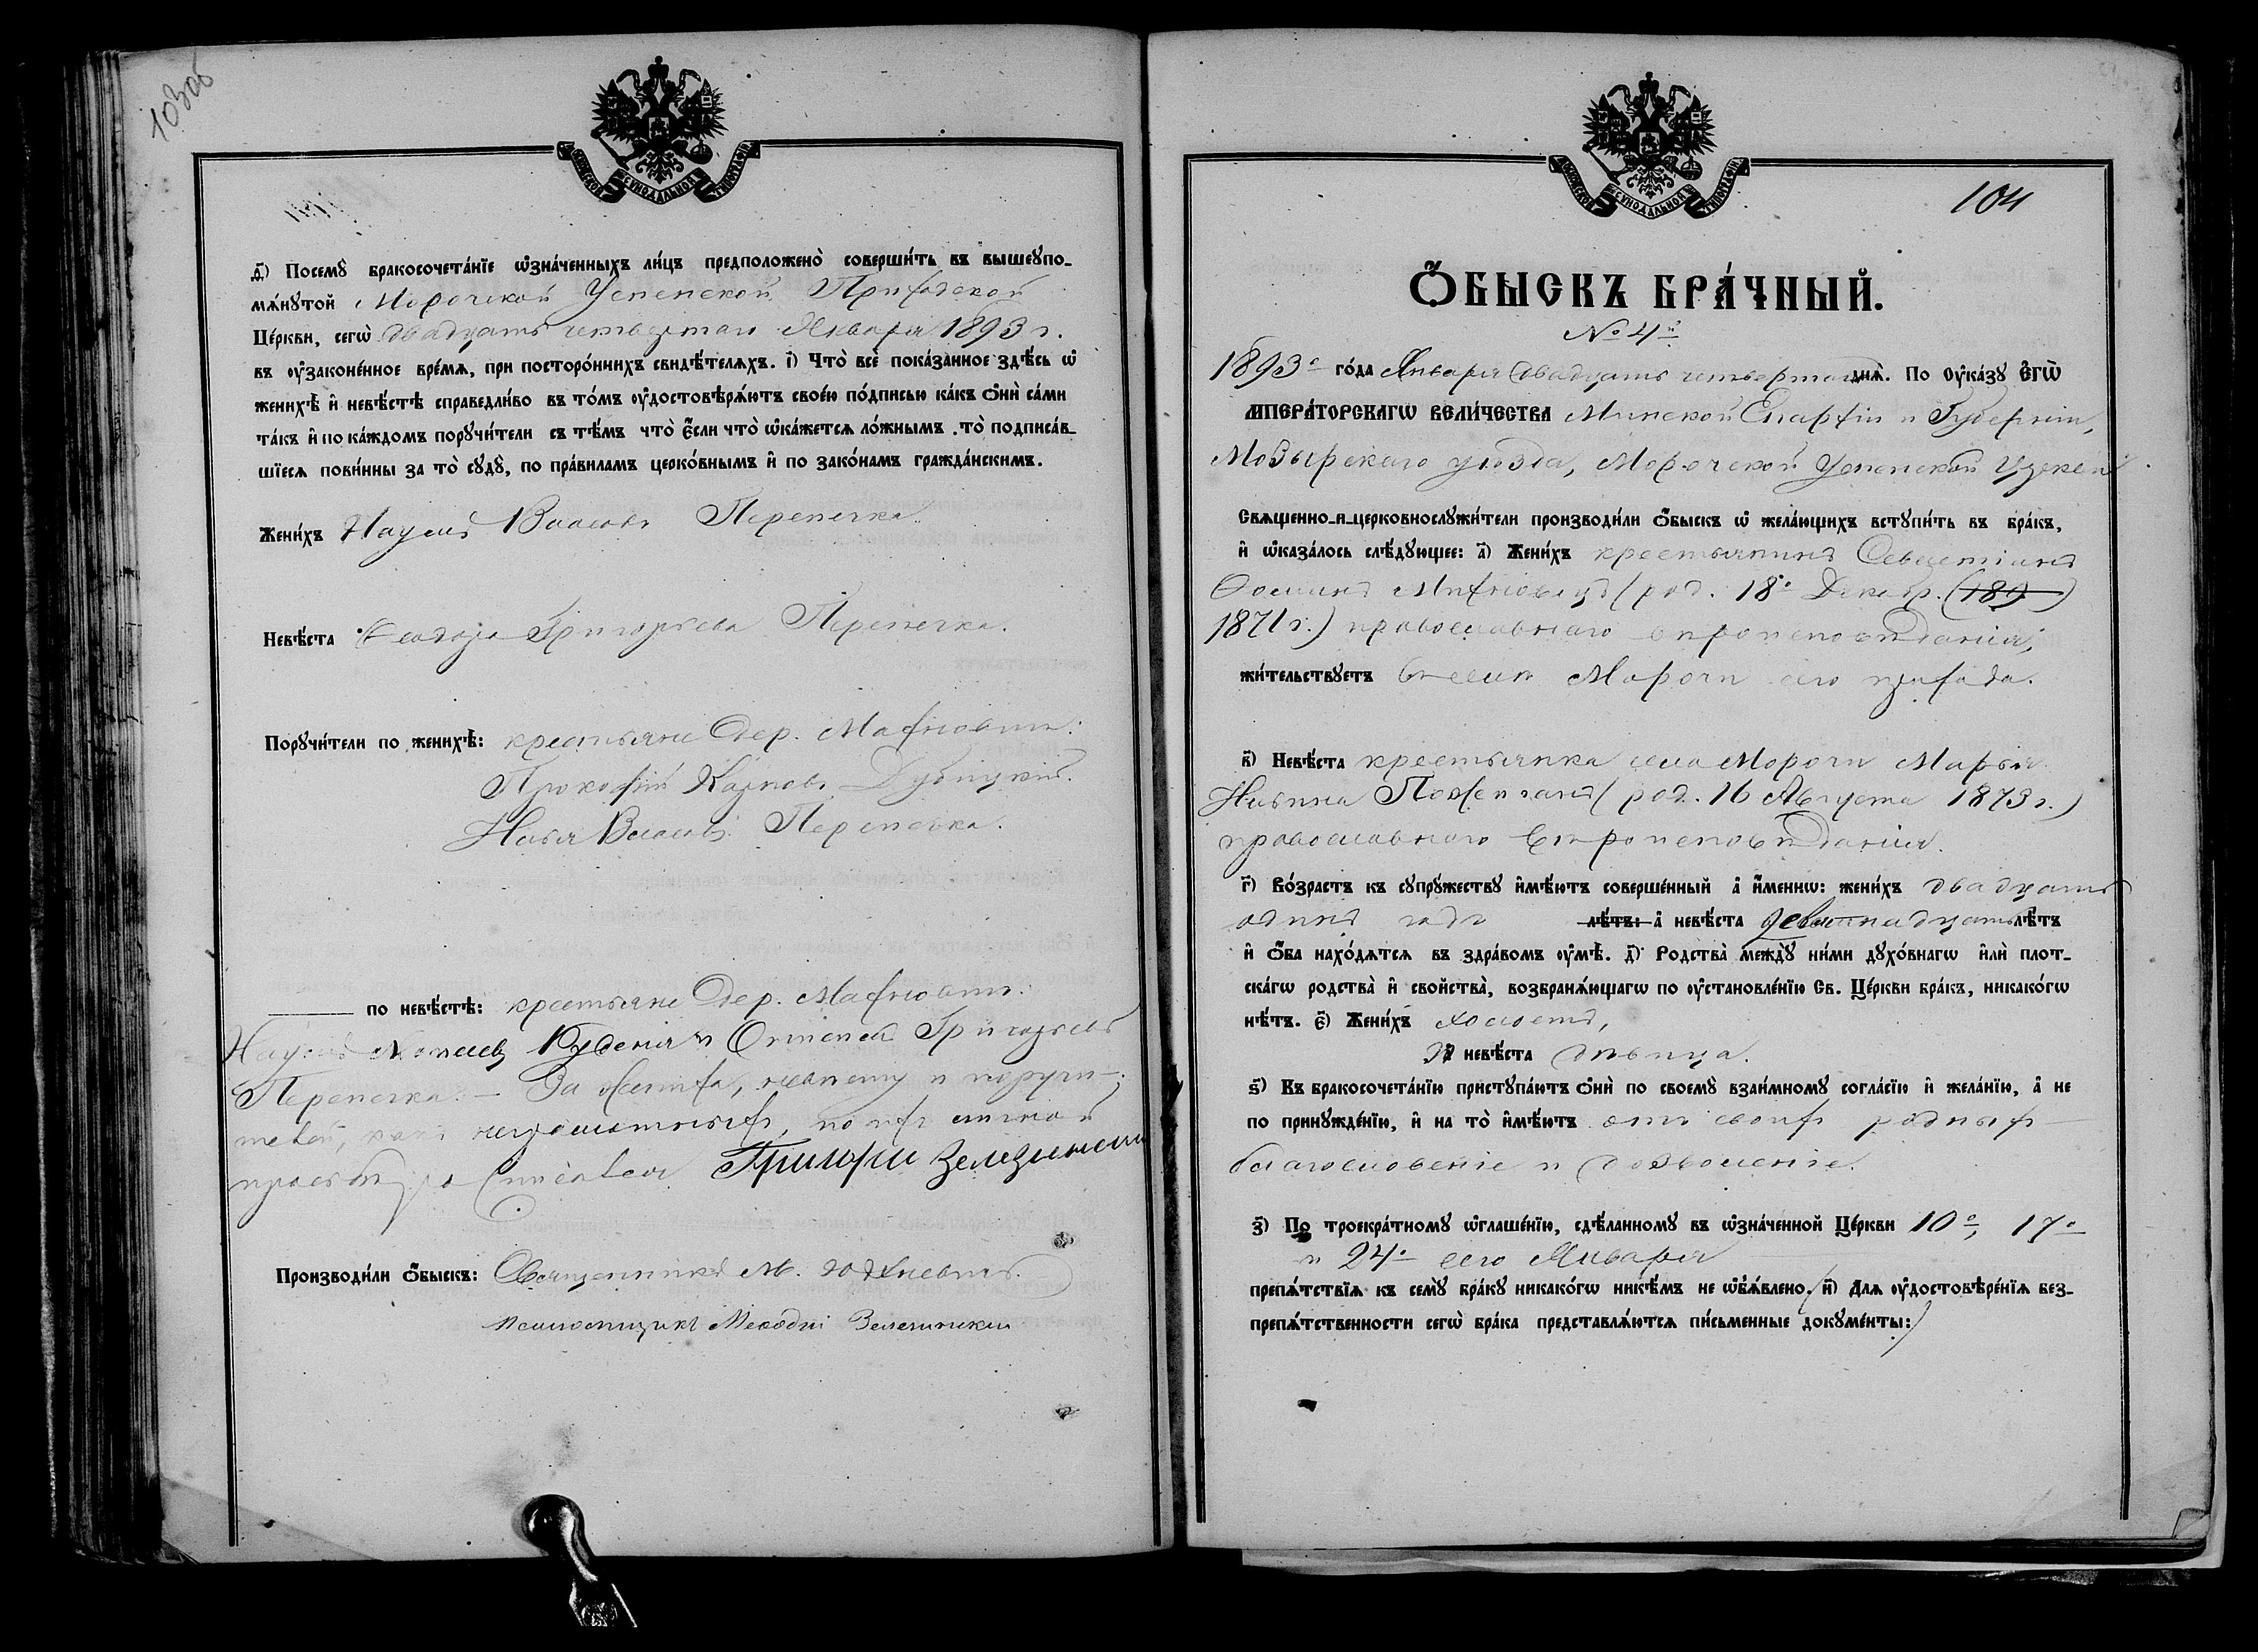 103об
МОСКОВСКОЙ СѴНОДАЛЬНОЙ ТИПОГРАФІИ
д҃) Посемꙋ̀ бракосочета́нїе ѡ҆зна́ченныхъ ли́цъ предположено̀ соверши́ть въ вышеꙋпо-
мѧ́нꙋтой Морочской Успенской Приходской
Це́ркви, сегѡ̀ двадцать четвертаго Января 1893 г.
въ ᲂу҆законе́нное вре́мѧ, при посторо́ннихъ свидѣ́телѧхъ. і҃) Что̀ всѐ пока́занное здѣ́сь ѡ҆
женихѣ̀ и҆ невѣ́стѣ справедли́во въ то́мъ ᲂу҆достовѣрѧ́ютъ свое́ю по́дписью ка́къ ѻ҆нѝ са́ми
та́къ и҆ по ка́ждомъ порꙋчи́тели съ тѣ́мъ что̀ є҆́сли что̀ ѡ҆ка́жетсѧ ло́жнымъ то̀ подписа́в-
шїесѧ пови́нны за то̀ сꙋдꙋ̀, по пра́виламъ церко́внымъ и҆ по зако́намъ гражда́нскимъ.
Жени́хъ Наумъ Власовъ Перепечка.
Невѣ́ста Ѳеодора Григорьева Перепечка.
Порꙋчи́тели по женихѣ̀: крестьяне дер. Махновичъ:
Прокофій Карповъ Дубицкій.
Илья Власовъ Перепечка.
по невѣ́стѣ: крестьяне дер. Махновичъ:
Наумъ Рудения и Григорьевъ
Перепечка. — За жениха, невѣсту и поручи-
телей, какъ неграмотныхъ, по ихъ личной
просьбѣ Григорій
Производи́ли ѻ҆́быскъ: Священникъ М.
псаломщикъ Меѳодій
МОСКОВСКОЙ СѴНОДАЛЬНОЙ ТИПОГРАФІИ
104
Ѻ҆́БЫСКЪ БРА́ЧНЫЙ.
№ 4й
1893о го́да Января двадцать четвертаго днѧ̀. По Оу҆ка́зꙋ Є҆ГѠ̀
И҆МПЕРА́ТОРСКАГѠ ВЕЛИ́ЧЕСТВА Минской Епархіи и Губерніи,
Мозырскаго уѣзда, Морочской Успенской церкви
Свѧщенно-и-церковнослꙋжи́тели производи́ли ѻ҆́быскъ ѡ҆ жела́ющихъ встꙋпи́ть въ бра́къ,
и҆ ѡ҆каза́лось слѣ́дꙋющее: а҃) Жени́хъ крестьянинъ Севастіанъ
Ѳоминъ Михновецъ (род. 18о Декабр. (189 )
1871 г.) православнаго вѣроисповѣданія,
жи́тельствꙋетъ въ селѣ Морочи сего прихода.
в҃) Невѣ́ста крестьянка села Морочи Марья
(род. 16 Августа 1873 г.)
православнаго вѣроисповѣданія.
г҃) Во́зрастъ къ сꙋпрꙋ́жествꙋ и҆мѣ́ютъ соверше́нный а҆ и҆́меннѡ: жени́хъ двадцать
одинъ годъ лѣ́тъ: а҆ невѣ́ста девятнадцать лѣ́тъ
и҆ ѻ҆́ба нахо́дѧтсѧ въ здра́вомъ ᲂу҆мѣ̀. д҃) Родства̀ междꙋ̀ ни́ми дꙋхо́внагѡ и҆лѝ плот-
ска́гѡ родства̀ и҆ сво́йства̀, возбранѧ́ющагѡ по ᲂу҆становле́нїю Св. Це́ркви бра́къ, никако́гѡ
нѣ́тъ. є҃) Жени́хъ холостъ,
а҆ невѣ́ста дѣвица.
ѕ҃) Къ бракосочета́нїю пристꙋпа́ютъ ѻ҆нѝ по своемꙋ̀ взаи́мномꙋ согла́сїю и҆ жела́нїю, а҆ не
по принꙋжде́нїю, и҆ на то̀ и҆мѣ́ютъ отъ своихъ родныхъ
благословеніе и дозволеніе.
з҃) По троекра́тномꙋ ѡ҆глаше́нїю, сдѣ́ланномꙋ въ ѡ҆зна́ченной Це́ркви 10о, 17о
и 24о сего Января
препѧ́тствїѧ къ семꙋ̀ бра́кꙋ никако́гѡ никѣ́мъ не ѡ҆б̾ѧ́влено. и҃) Длѧ ᲂу҆достовѣре́нїѧ без-
препѧ́тственности сегѡ̀ бра́ка представлѧ́ютсѧ пи́сьменные докꙋме́нты: